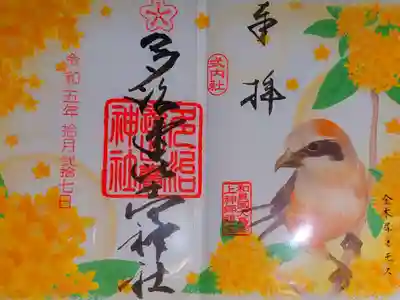 奉拝
式内社
金木犀とモズ
多治速比売神社
神社
令和五年 拾月 弐拾七日